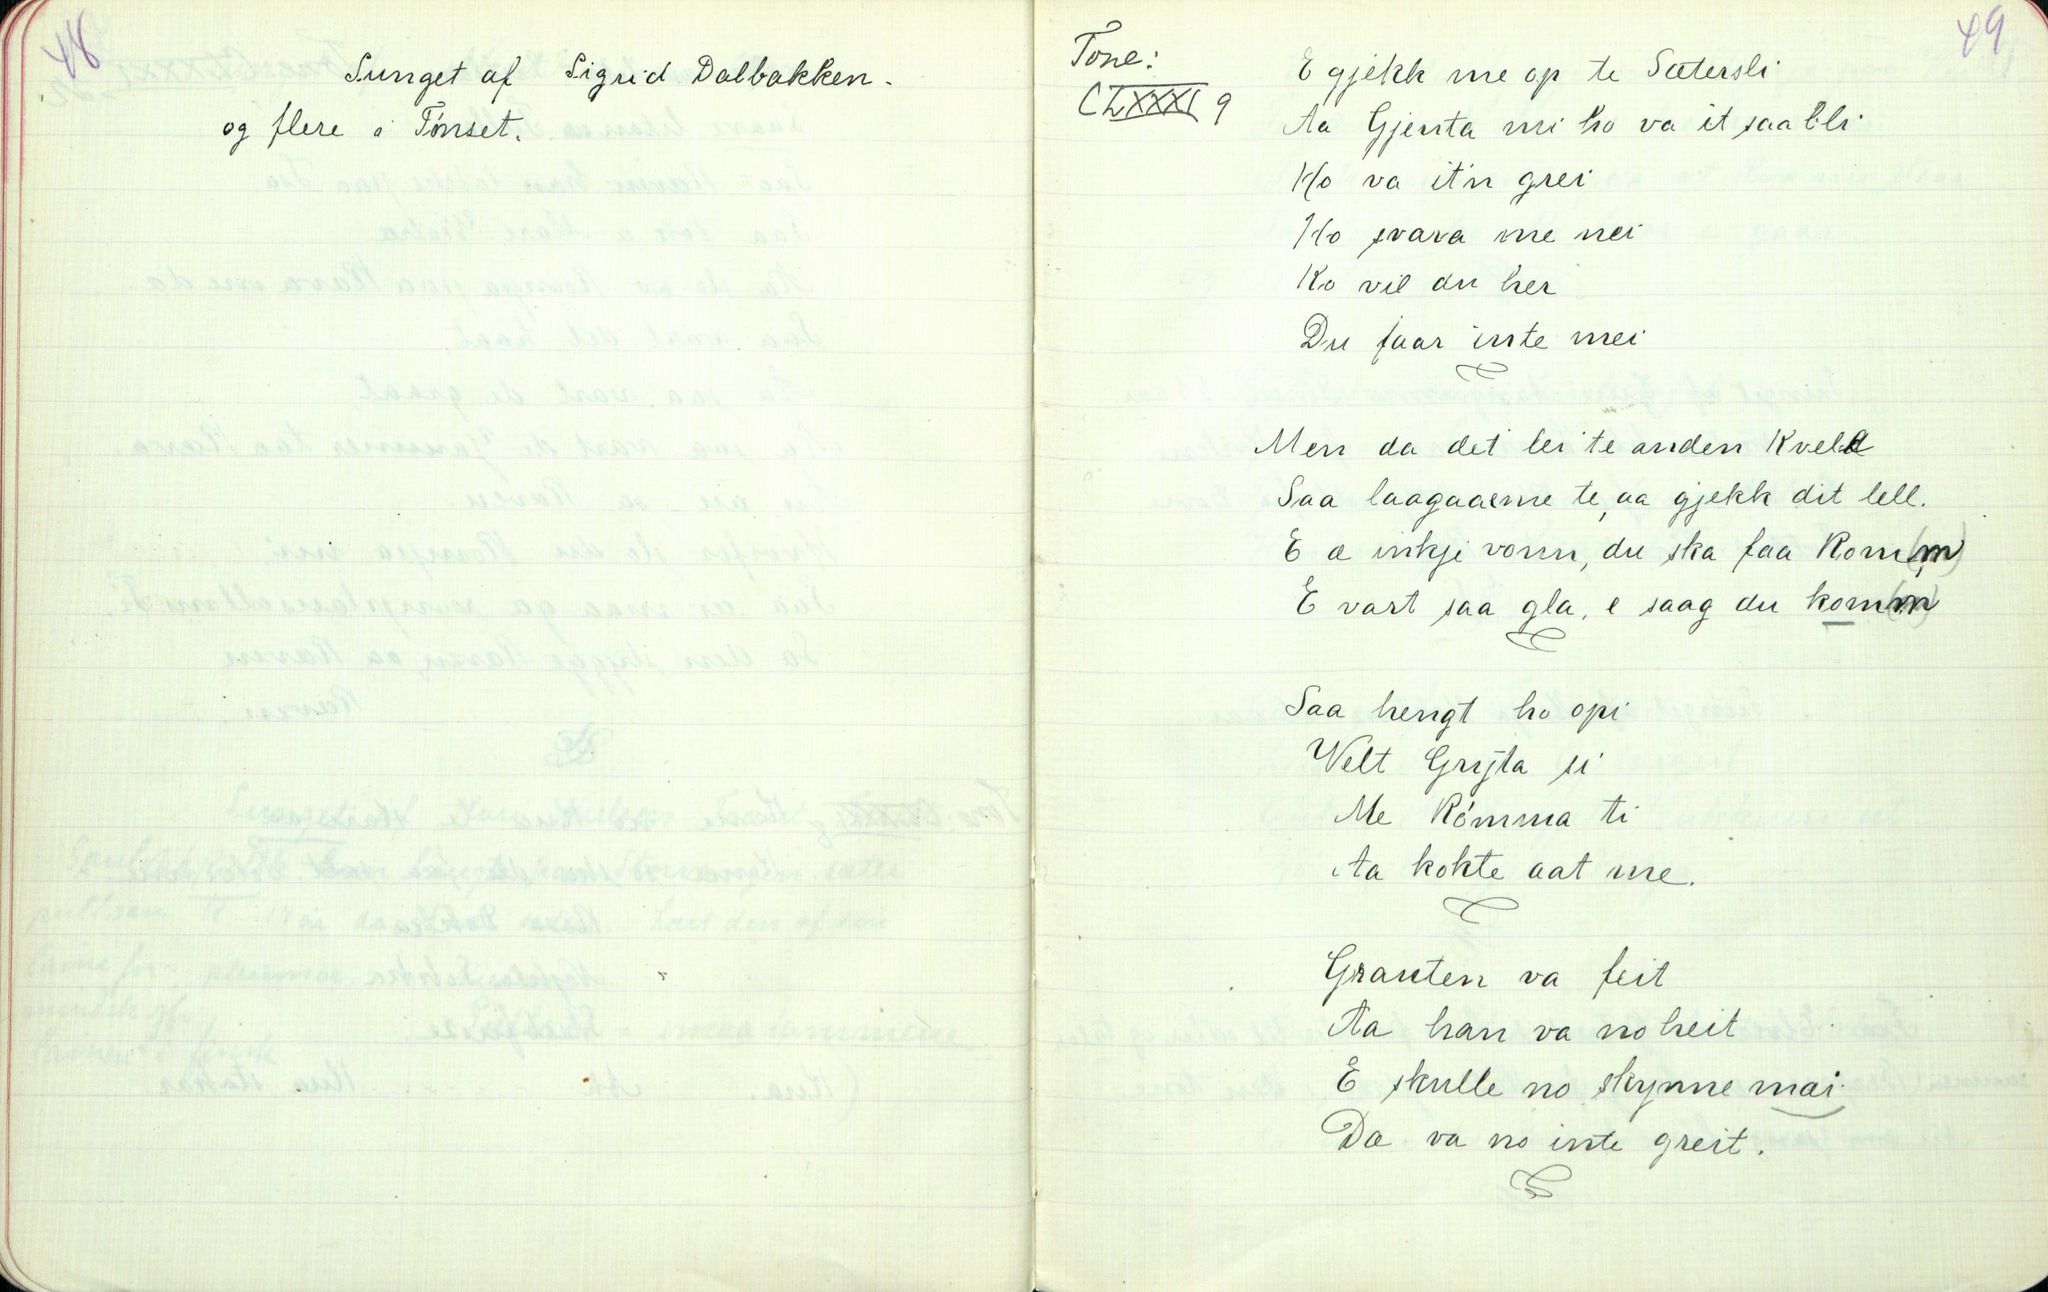 48
Sunget af Sigrid Dalbakken.
og flere i Tönset.
49
Tone:
CLXXXI 9
E gjekk me op te Sætersli
Aa Gjenta mi ho va it saa bli
Ho va it'n grei
Ho svara me nei
Ko vil du her
Du faar inte mei
Men da det lei te anden Kveld
Saa laagaa e me te, aa gjekk dit lell.
E æ inkje vonn, du ska faa Rom(m)
E vart saa gla, e saag du kom(m)
Saa hengt ho opi
Velt Gryta si
Me Römma ti
Aa kokte aat me.
Grauten va feit
Aa han va no heit
E skulle no skynne mai
Dæ va no inte greit.